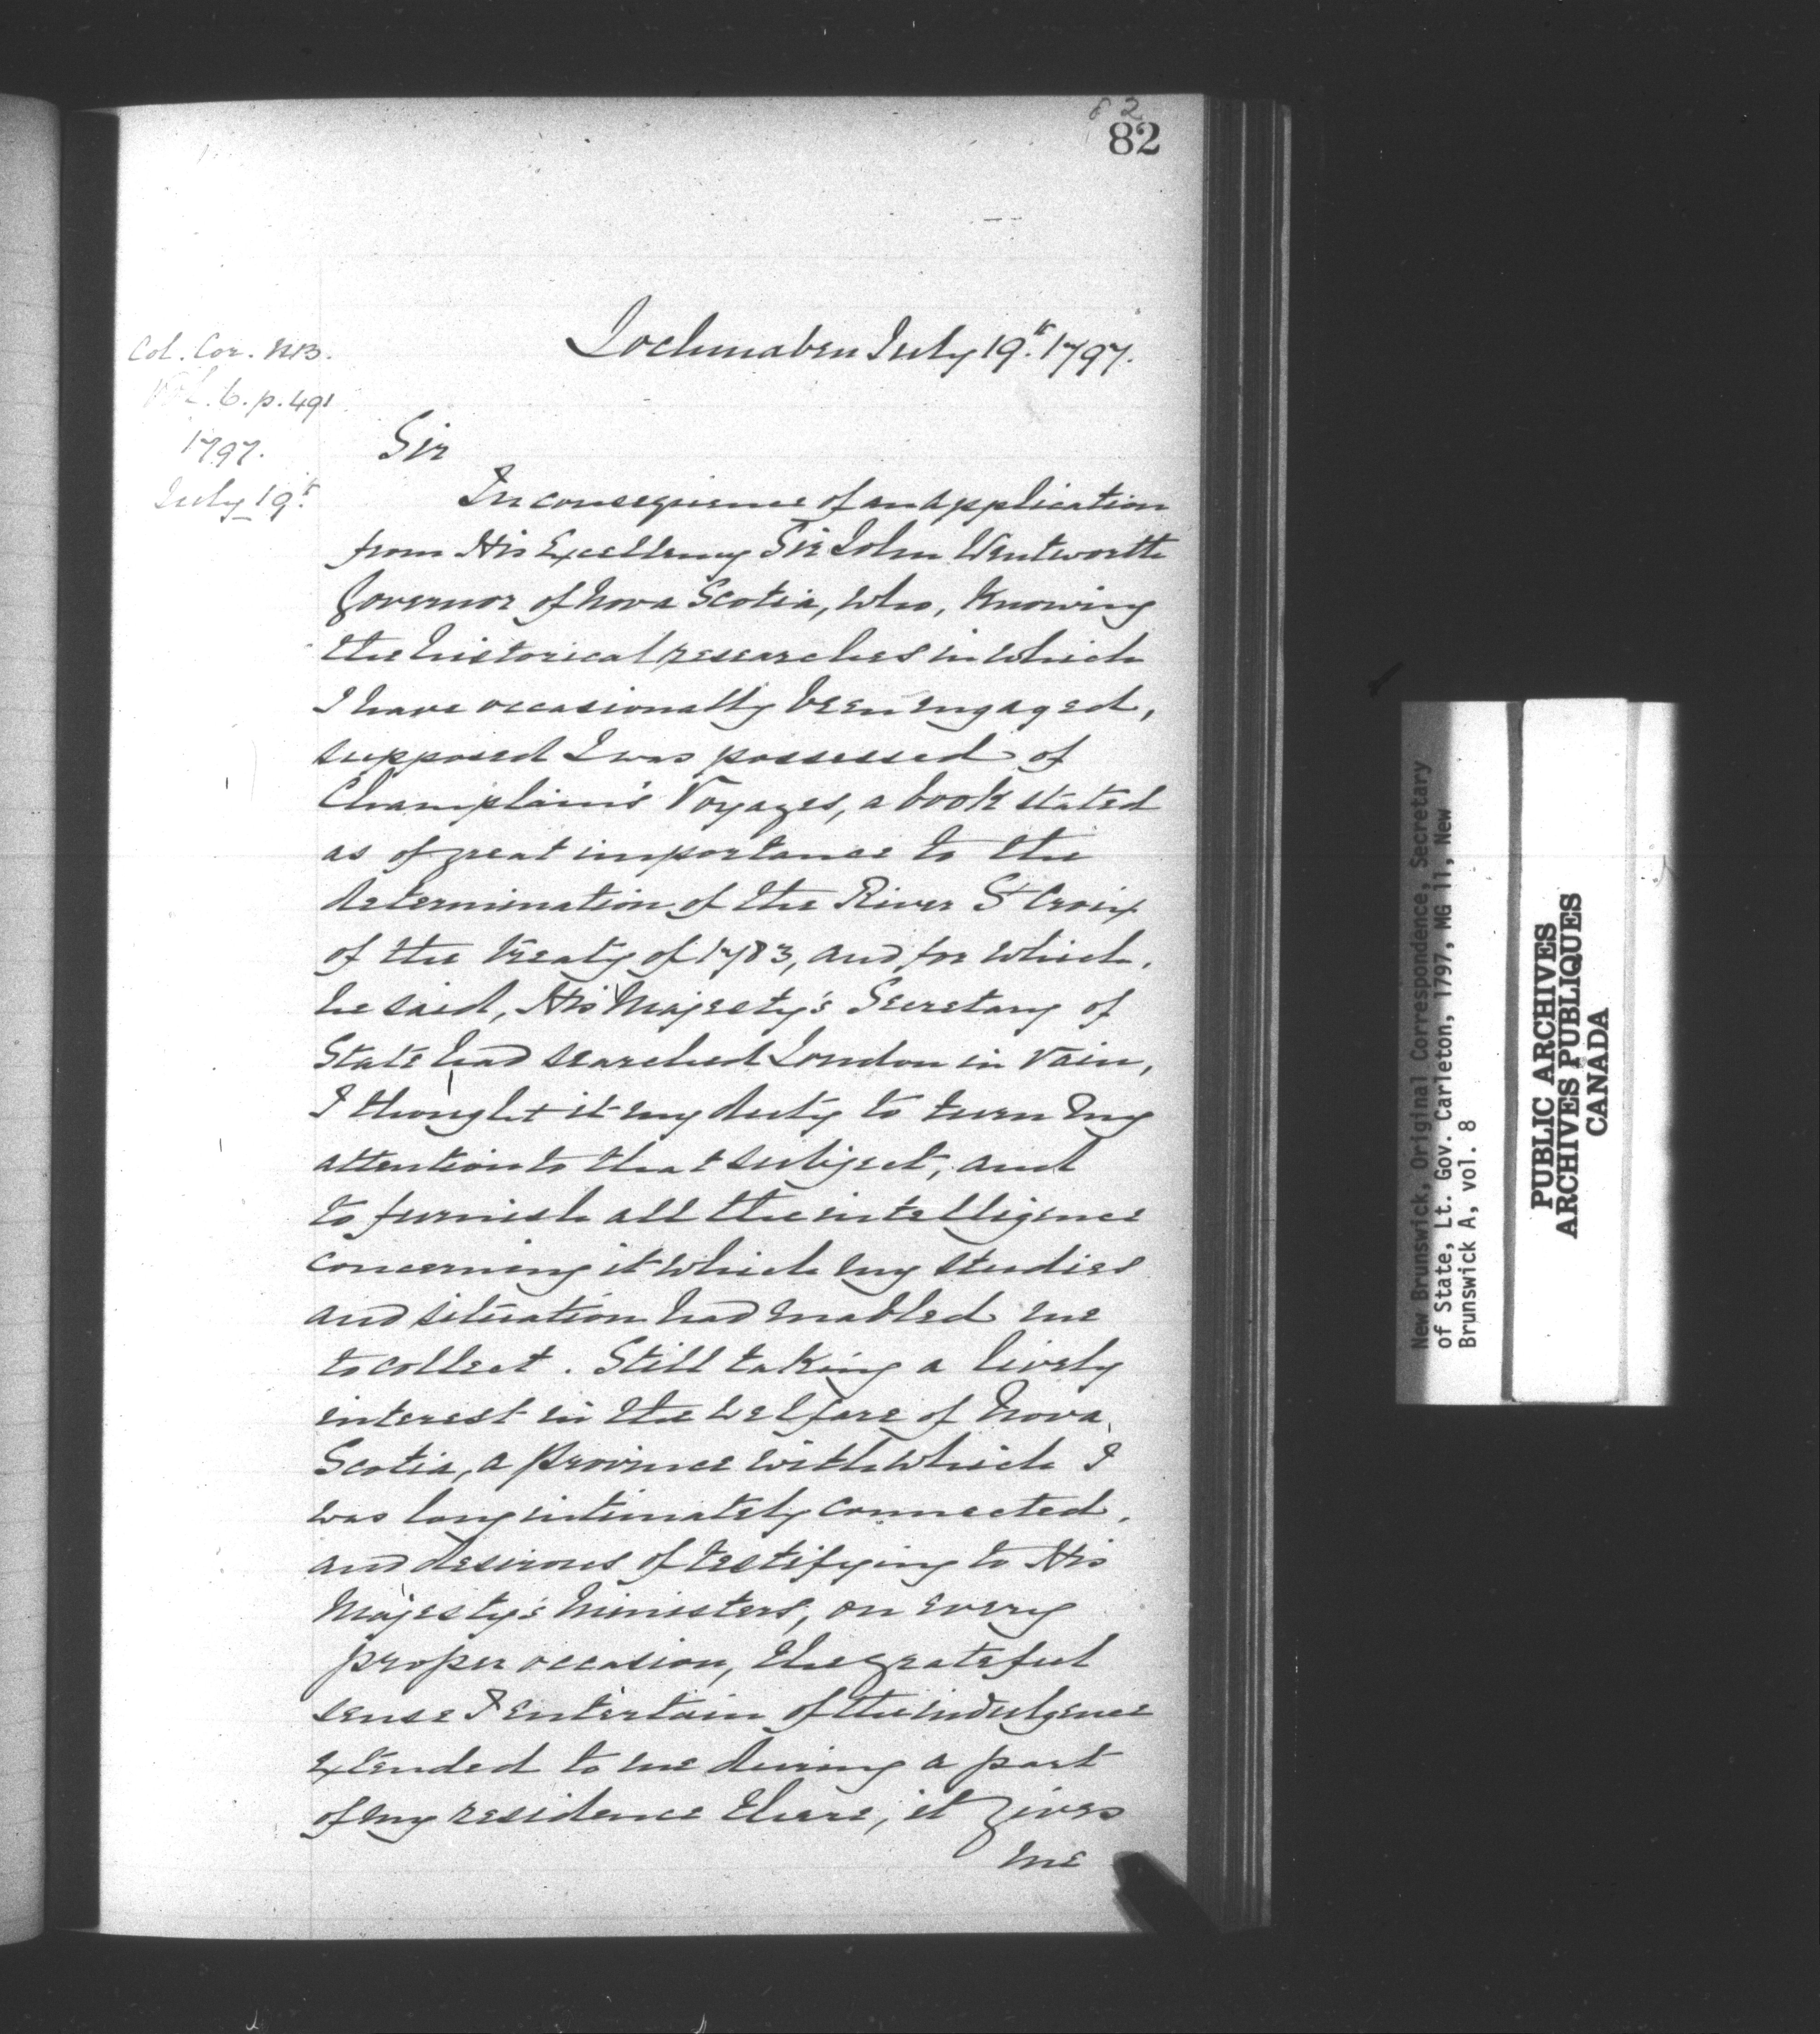 82
82
Lochmaben July 19th. 1797.
Col. Cor. N.B.
Vol. 6. p. 491
1797.
July 19th
Sir
In consequence of an application
from His Excellency Sir John Wentworth
Governor of Nova Scotia, who, knowing
the historical researches in which
I have occasionally been engaged,
supposed I was possessed of
Champlain's Voyages, a book stated
as of great importance to the
determination of the River St Croix
of the treaty of 1783, and for which,
he said, His Majesty's Secretary of
State had searched London in vain,
I thought it my duty to turn my
attention to that subject, and
to furnish all the intelligence
concerning it which my studies
and situation had enabled me
to collect. Still taking a lively
interest in the welfare of Nova
Scotia, a province with which I
was long intimately connected,
and desirous of testifying to His
Majesty's Ministers, on every
proper occasion, the grateful
sense I entertain of the indulgence
extended to me during a part
of my residence there, it gives
me
New Brunswick, Original Correspondence, Secretary
of State, Lt. Gov. Carleton, 1797, MG 11, New
Brunswick A, vol. 8
PUBLIC ARCHIVES
ARCHIVES PUBLIQUES
CANADA